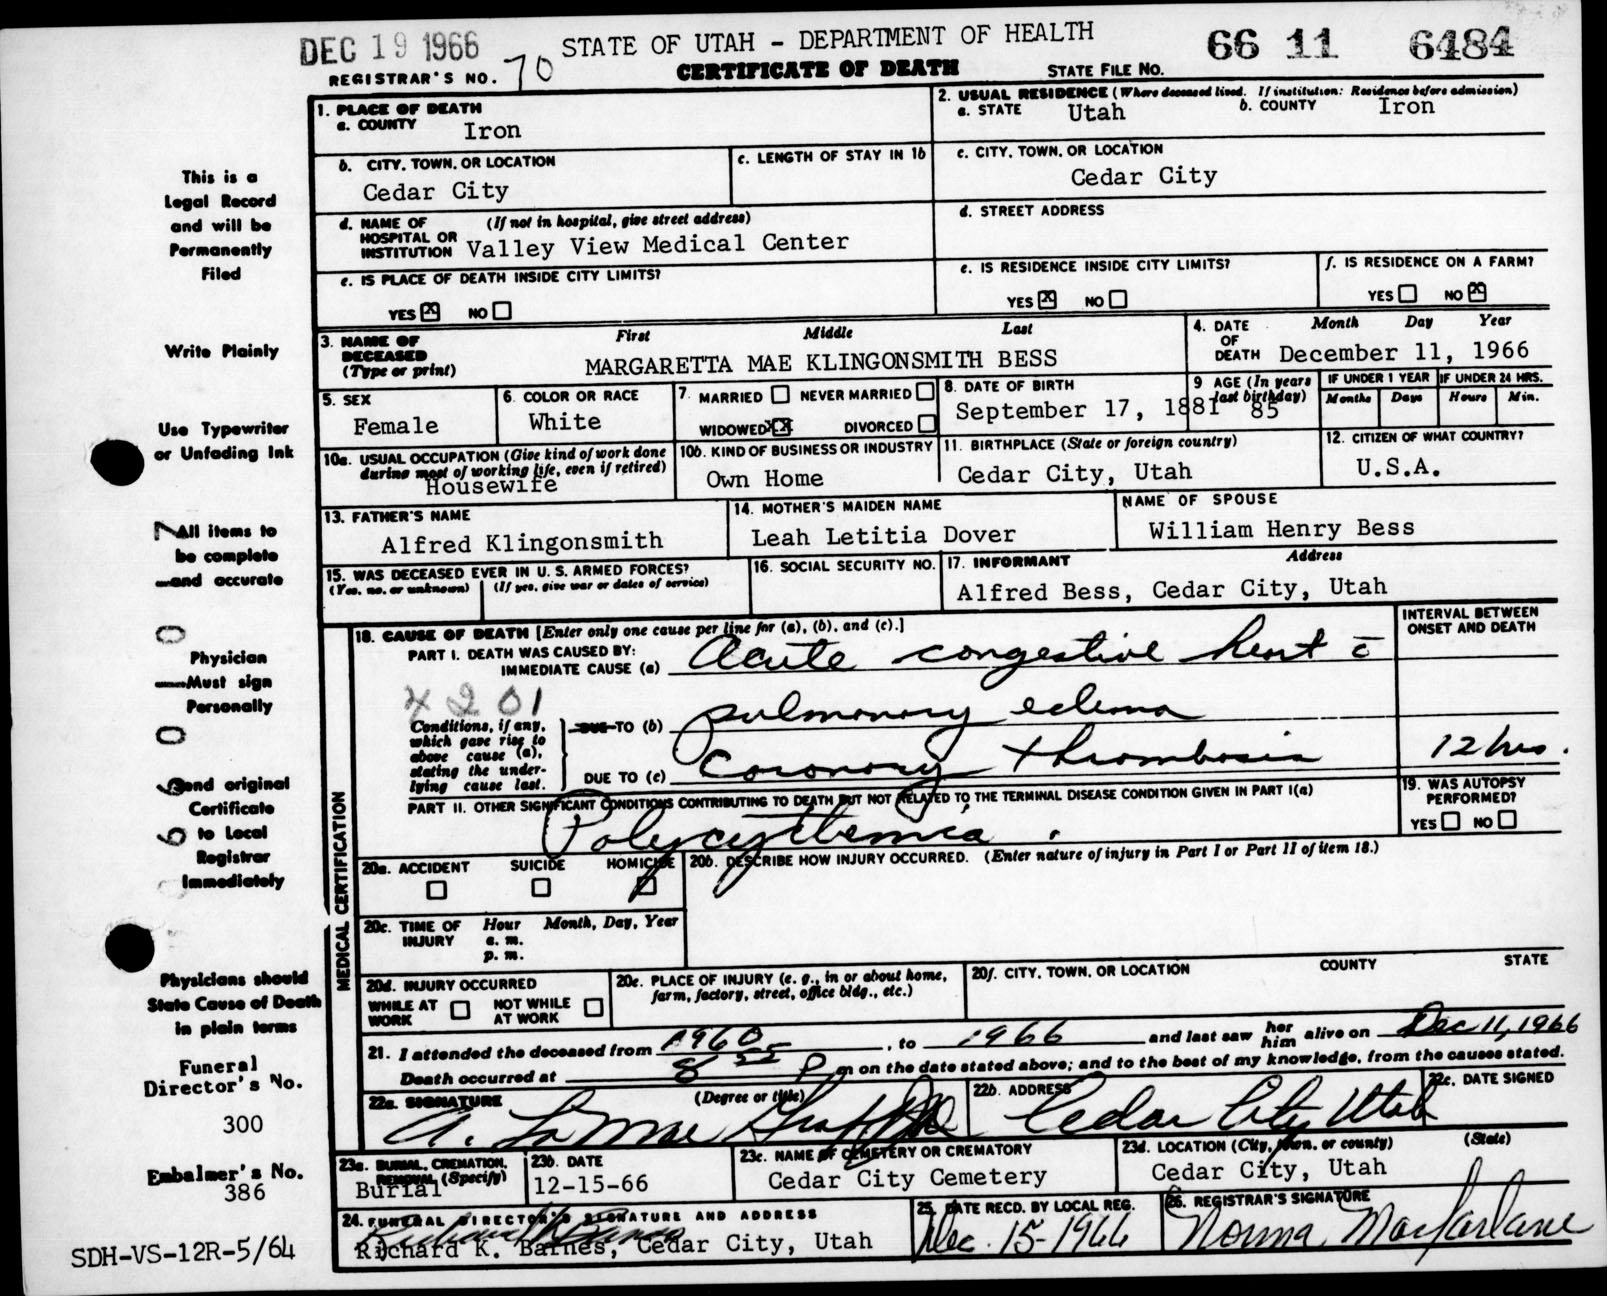 DEC 19 1966
STATE OF UTAH - DEPARTMENT OF HEALTH
66 11 6484
REGISTRAR'S NO. 70
CERTIFICATE OF DEATH
STATE FILE NO.
1. PLACE OF DEATH
a. COUNTY Iron
2. USUAL RESIDENCE (Where deceased lived. If institution: Residence before admission)
a. STATE Utah b. COUNTY Iron
b. CITY, TOWN, OR LOCATION
Cedar City
c. LENGTH OF STAY IN 1b
c. CITY, TOWN, OR LOCATION
Cedar City
d. NAME OF (If not in hospital, give street address)
HOSPITAL OR
INSTITUTION Valley View Medical Center
d. STREET ADDRESS
e. IS PLACE OF DEATH INSIDE CITY LIMITS?
YES X NO
e. IS RESIDENCE INSIDE CITY LIMITS?
YES X NO
f. IS RESIDENCE ON A FARM?
YES NO X
3. NAME OF DECEASED (Type or print)
First Middle Last
MARGARETTA MAE KLINGONSMITH BESS
4. DATE OF DEATH
Month Day Year
December 11, 1966
5. SEX
Female
6. COLOR OR RACE
White
7. MARRIED NEVER MARRIED
WIDOWED XX DIVORCED
8. DATE OF BIRTH
September 17, 1881
9 AGE (In years last birthday)
85
IF UNDER 1 YEAR IF UNDER 24 HRS.
Months Days Hours Min.
10a. USUAL OCCUPATION (Give kind of work done
during most of working life, even if retired)
Housewife
10b. KIND OF BUSINESS OR INDUSTRY
Own Home
11. BIRTHPLACE (State or foreign country)
Cedar City, Utah
12. CITIZEN OF WHAT COUNTRY?
U.S.A.
13. FATHER'S NAME
Alfred Klingonsmith
14. MOTHER'S MAIDEN NAME
Leah Letitia Dover
NAME OF SPOUSE
William Henry Bess
15. WAS DECEASED EVER IN U. S. ARMED FORCES?
(Yes, no, or unknown) (If yes, give war or dates of service)
16. SOCIAL SECURITY NO.
17. INFORMANT Address
Alfred Bess, Cedar City, Utah
MEDICAL CERTIFICATION
18. CAUSE OF DEATH [Enter only one cause per line for (a), (b), and (c).]
INTERVAL BETWEEN
ONSET AND DEATH
PART I. DEATH WAS CAUSED BY:
IMMEDIATE CAUSE (a) Acute congestive heart c̄
4201
Conditions, if any,
which gave rise to
above cause (a),
stating the under-
lying cause last.
DUE TO (b) pulmonary edema
DUE TO (c) Coronary thrombosis 12 hrs.
PART II. OTHER SIGNIFICANT CONDITIONS CONTRIBUTING TO DEATH BUT NOT RELATED TO THE TERMINAL DISEASE CONDITION GIVEN IN PART I(a)
Polycythemia.
19. WAS AUTOPSY
PERFORMED?
YES NO
20a. ACCIDENT SUICIDE HOMICIDE
20b. DESCRIBE HOW INJURY OCCURRED. (Enter nature of injury in Part I or Part II of item 18.)
20c. TIME OF INJURY
Hour Month, Day, Year
a. m.
p. m.
20d. INJURY OCCURRED
WHILE AT WORK NOT WHILE AT WORK
20e. PLACE OF INJURY (e. g., in or about home,
farm, factory, street, office bldg., etc.)
20f. CITY, TOWN, OR LOCATION COUNTY STATE
21. I attended the deceased from 1960, to 1966 and last saw her him alive on Dec 11, 1966
Death occurred at 8 P m on the date stated above; and to the best of my knowledge, from the causes stated.
22a. SIGNATURE (Degree or title)
22b. ADDRESS
Cedar City, Utah
22c. DATE SIGNED
23a. BURIAL, CREMATION,
REMOVAL (Specify)
Burial
23b. DATE
12-15-66
23c. NAME OF CEMETERY OR CREMATORY
Cedar City Cemetery
23d. LOCATION (City, town, or county) (State)
Cedar City, Utah
24. FUNERAL DIRECTOR'S SIGNATURE AND ADDRESS
Richard K. Barnes, Cedar City, Utah
25. DATE RECD. BY LOCAL REG.
Dec. 15-1966
26. REGISTRAR'S SIGNATURE
Norma Macfarlane
This is a
Legal Record
and will be
Permanently
Filed
Write Plainly
Use Typewriter
or Unfading Ink
All items to
be complete
and accurate
Physician
Must sign
Personally
Send original
Certificate
to Local
Registrar
Immediately
Physicians should
State Cause of Death
in plain terms
Funeral
Director's No.
300
Embalmer's No.
386
SDH-VS-12R-5/64